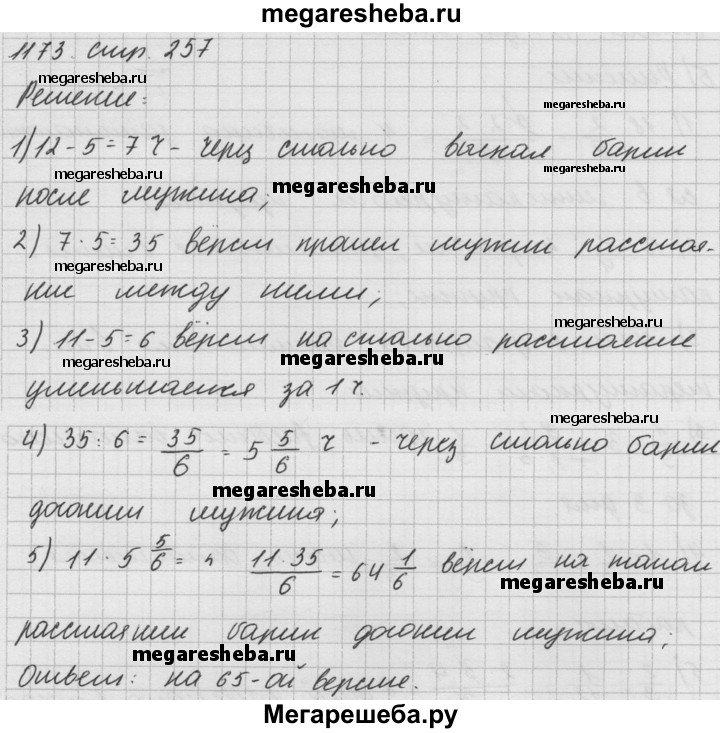 megaresheba.ru
1173. стр. 257
megaresheba.ru
Решение:
megaresheba.ru
1) 12 - 5 = 7 ч - через столько выехал барин
megaresheba.ru
megaresheba.ru
megaresheba.ru
после мужика;
2) 7 · 5 = 35 вёрст прошел мужик расстоя-
megaresheba.ru
megaresheba.ru
ние между ними;
megaresheba.ru
3) 11 - 5 = 6 вёрст на столько расстояние
megaresheba.ru
megaresheba.ru
уменьшается за 1 ч.
megaresheba.ru
4) 35 : 6 = 35/6 = 5 5/6 ч - через столько барин
megaresheba.ru
догонит мужика;
5) 11 · 5 5/6 = 11·35/6 = 64 1/6 вёрст на таком
megaresheba.ru
расстоянии барин догонит мужика;
megaresheba.ru
Ответ: на 65-ой версте.
Мегарешеба.ру